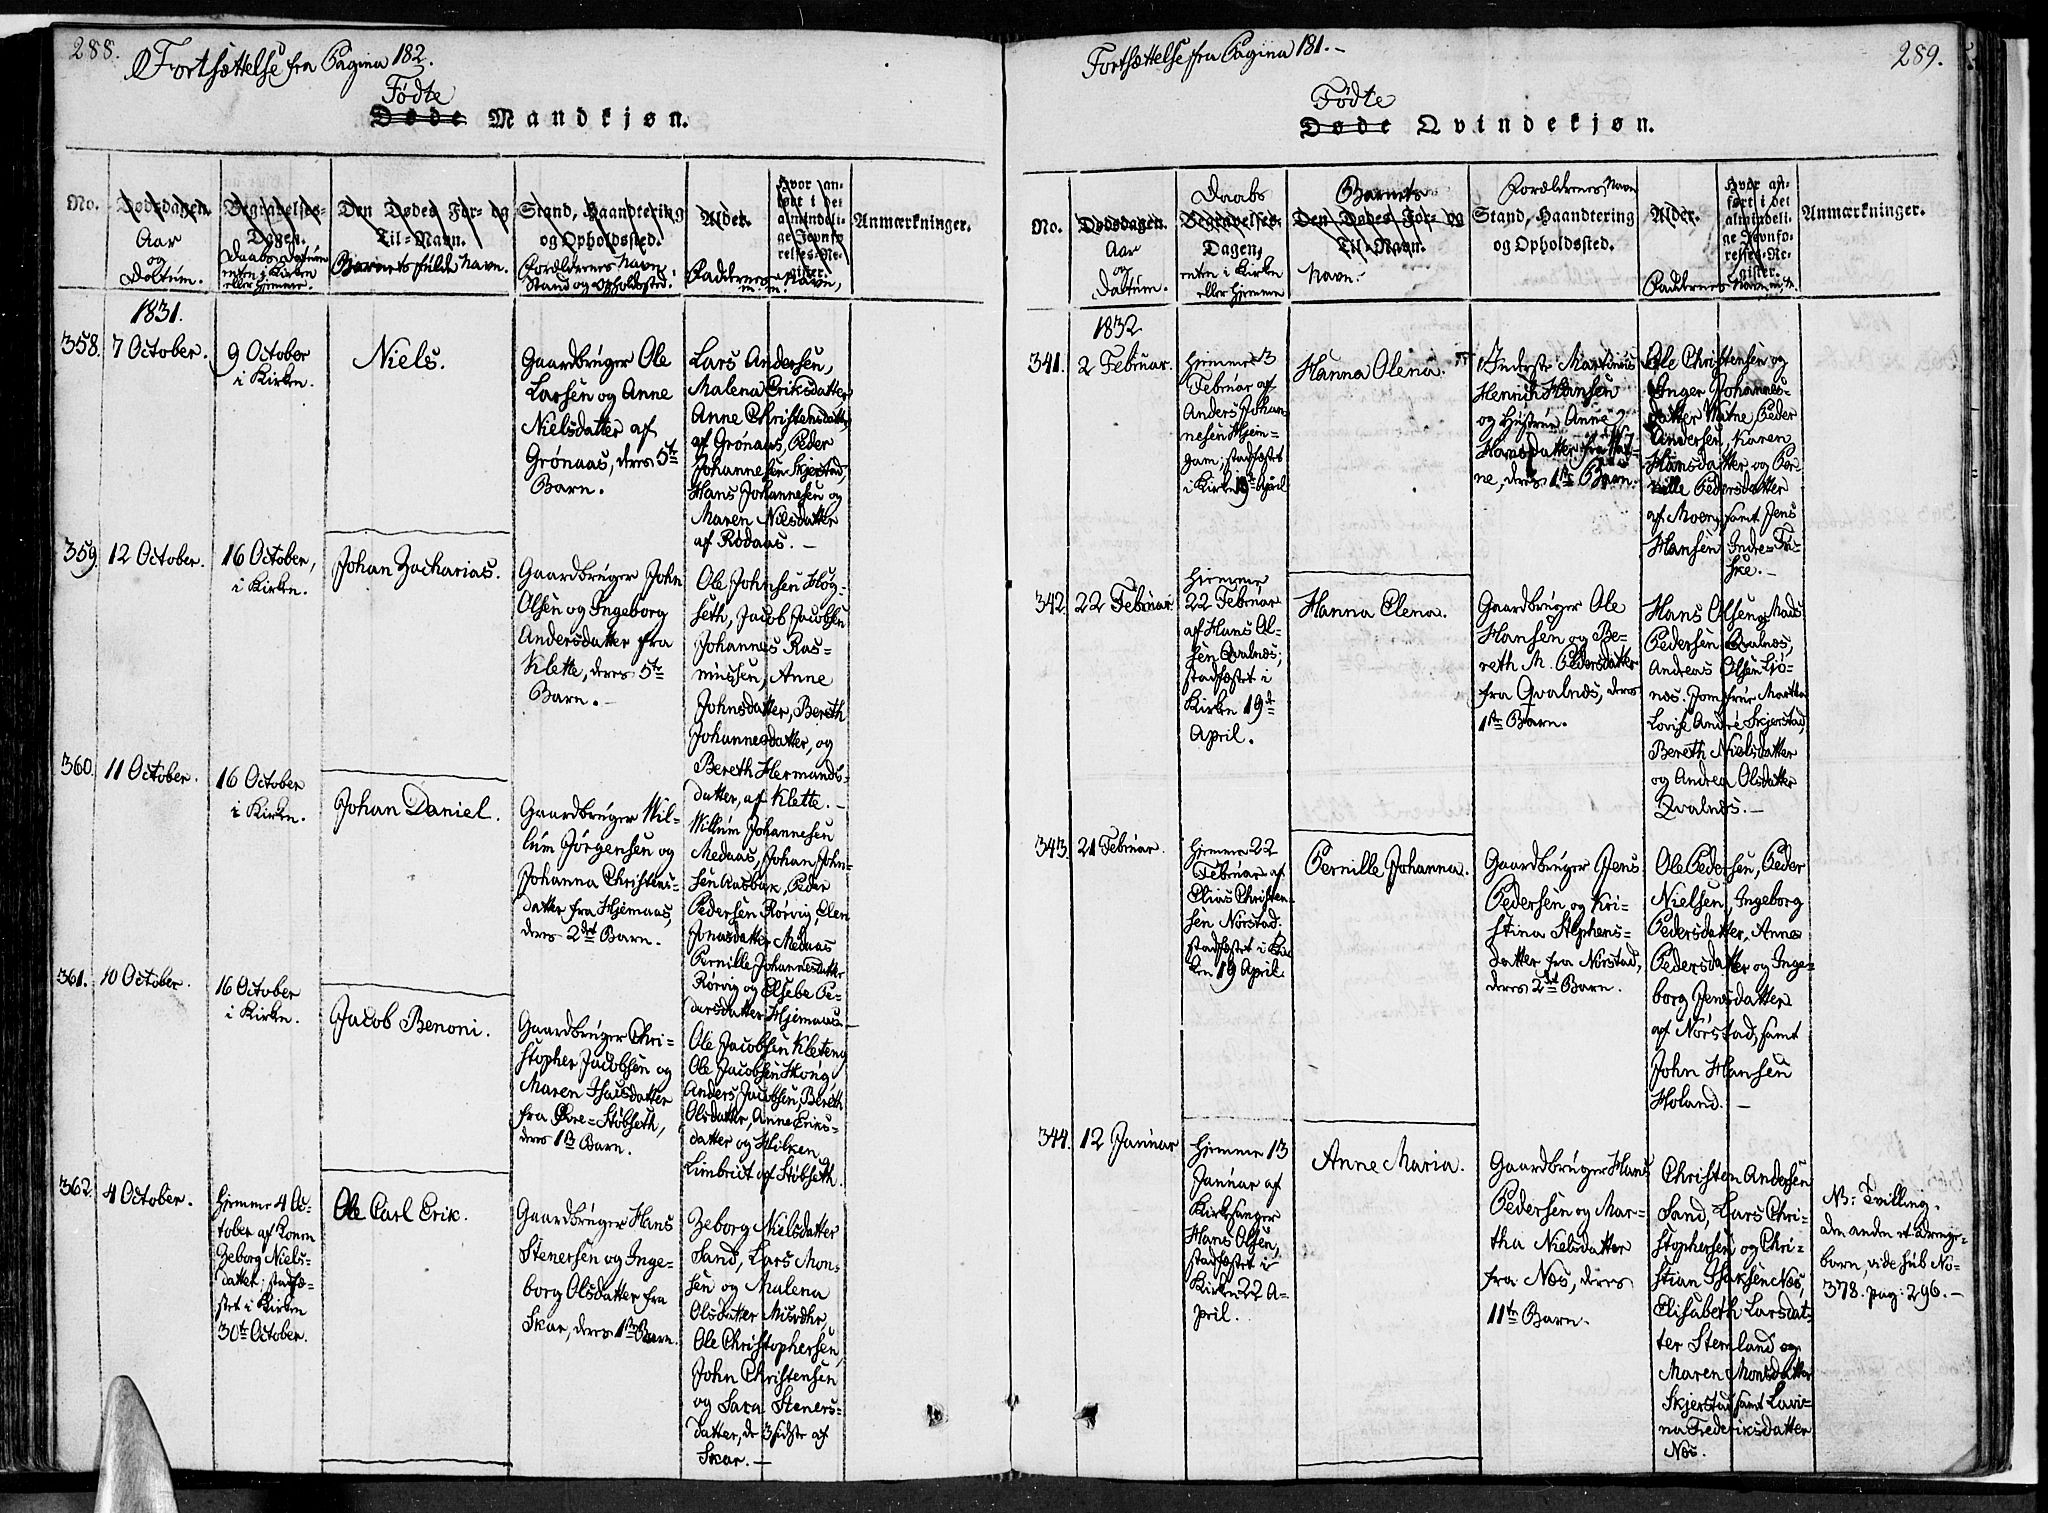 288.
Fortsættelse fra Pagina 182.
Fødte
Døde Mandkjøn.
No.
Dødsdagen.
Aar
og
Datum.
Begravelses-
Dagen.
Daabs Datum
enten i Kirken
eller hjemme.
Den Dødes For- og
Til-Navn.
Barnets fulde Navn.
Stand, Haandtering
og Opholdssted.
Forældrenes Navn,
Stand og Opholdssted.
Alder.
Faddernes Navn,
m. m.
Hvor an-
ført i det
almindeli-
ge Jevnfø-
relses-Re-
gister.
Anmærkninger.
1831.
358.
7 October.
9 October
i Kirken.
Niels.
Gaardbruger Ole
Larsen og Anne
Nielsdatter af
Grönaas, deres 5te
Barn.
Lars Andersen,
Malena Eriksdatter
Anne Christensdatter
af Grönaas, Peder
Johannesen Skjerstad,
Hans Johannesen og
Maren Nielsdatter
af Rödaas. —
359.
12 October.
16 October,
i Kirken.
Johan Zacharias.
Gaardbruger John
Olsen og Ingeborg
Andersdatter fra
Klette, deres 5te
Barn. —
Ole Johnsen Hög-
seth, Jacob Jacobsen
Johannes Ras-
mussen, Anne
Johnsdatter, Bereth
Johannesdatter, og
Bereth Hermands-
datter, af Klette. —
360.
11 October.
16 October
i Kirken.
Johan Daniel.
Gaardbruger Wil-
lum Jörgensen og
Johanna Christens-
datter fra Hjemaas,
deres 2det Barn.
Willum Johannesen
Medaas, Johan John-
sen Aasbak, Peder
Pedersen Rörvig, Elen
Jonasdatter Medaas
Pernille Johannesdatter
Rörvig og Elsebe Pe-
dersdatter Hjemaas. —
361.
10 October.
16 October
i Kirken.
Jacob Benoni.
Gaardbruger Chri-
stopher Jacobsen og
Maren Isaisdatter
fra Övre-Stöbseth,
deres 1te Barn.
Ole Jacobsen Kleteng
Ole Jacobsen
Anders Jacobsen, Bereth
Olsdatter, Anne Eriks-
datter og Hilken
af Stöbseth.
362.
4 October.
Hjemme 4 Oc-
tober af Konen
Zeborg Niels-
datter; stadfæ-
stet i Kirken
30te October.
Ole Carl Erik.
Gaardbruger Hans
Stenersen og Inge-
borg Olsdatter fra
Skar, deres 1te Barn.
Zeborg Nielsdatter
Sand, Lars Mon-
sen og Malena
Olsdatter Misvær,
Ole Christophersen,
John Christensen
og Sara Steners-
datter, de 3 sidste af
Skar. —
289.
Fortsættelse fra Pagina 181. —
Fødte
Døde Qvindekjøn.
No.
Dødsdagen.
Aar
og
Datum.
Daabs
Begravelses-
Dagen,
enten i Kirken
eller hjemme
Barnets
Den Dødes For- og
Til-Navn.
Navn.
Forældrenes Navn
Stand, Haandtering
og Opholdssted.
Alder.
Faddernes Navn m. m.
Hvor an-
ført i det
almindeli-
ge Jevnfø-
relses-Re-
gister.
Anmærkninger.
1832
341.
2 Februar.
Hjemme 3
Februar af
Anders Johan-
nesen Hjem-
gam; stadfæstet
i Kirken 19de April
Hanna Olena.
Inderste Martinus
Henrich Hansen
og Hustrue Anne
Hansdatter fra
ne, deres 1te Barn.
Ole Christensen og
Inger Johannes-
datter Peder
Andersen, Karen
Hansdatter og Per-
nille Pedersdatter
af Moen, samt Jens
Hansen Indre Fa-
ske. —
342.
22 Februar
Hjemme
22 Februar
af Hans Ol-
sen Qvalnæs,
stadfæstet i
Kirken 19de
April.
Hanna Elena.
Gaardbruger Ole
Hansen og Be-
reth M. Pedersdatter
fra Qvalnæs, deres
1te Barn.
Hans Olsen og Mads
Pedersen Qvalnæs,
Andreas Olsen Ljö-
næs. Jomfrue Martha
Lovise André Skjerstad,
Bereth Nielsdatter
og Andrea Olsdatter
Qvalnæs. —
343.
21 Februar.
Hjemme 22
Februar af
Elias Christen-
sen Nörstad.
stadfæstet i Kir-
ken 19 April.
Pernille Johanna.
Gaardbruger Jens
Pedersen og Kri-
stina Stephens-
datter fra Nörstad,
deres 2det Barn.
Ole Pedersen, Peder
Nielsen, Ingeborg
Pedersdatter, Anne
Pedersdatter og Inge-
borg Jensdatter
af Nörstad, samt
John Hansen
Höland. —
344.
12 Januar
Hjemme 13
Januar af
Kirkesanger
Hans Olsen,
stadfæstet i
Kirken 22 A-
pril.
Anne Maria.
Gaardbruger Hans
Pedersen og Mar-
tha Nielsdatter
fra Næs, deres
11te Barn.
Christen Andersen
Sand, Lars Chri-
stophersen og Chri-
stian Isaksen Næs,
Elisabeth Larsdat-
ter Stemland og
Maren Monsdatter
Skjerstad samt Lovi-
na Frederiksdatter
Næs.
NB: Tvilling.
den anden et Drenge-
barn, vide sub No-
378. pag: 296. —